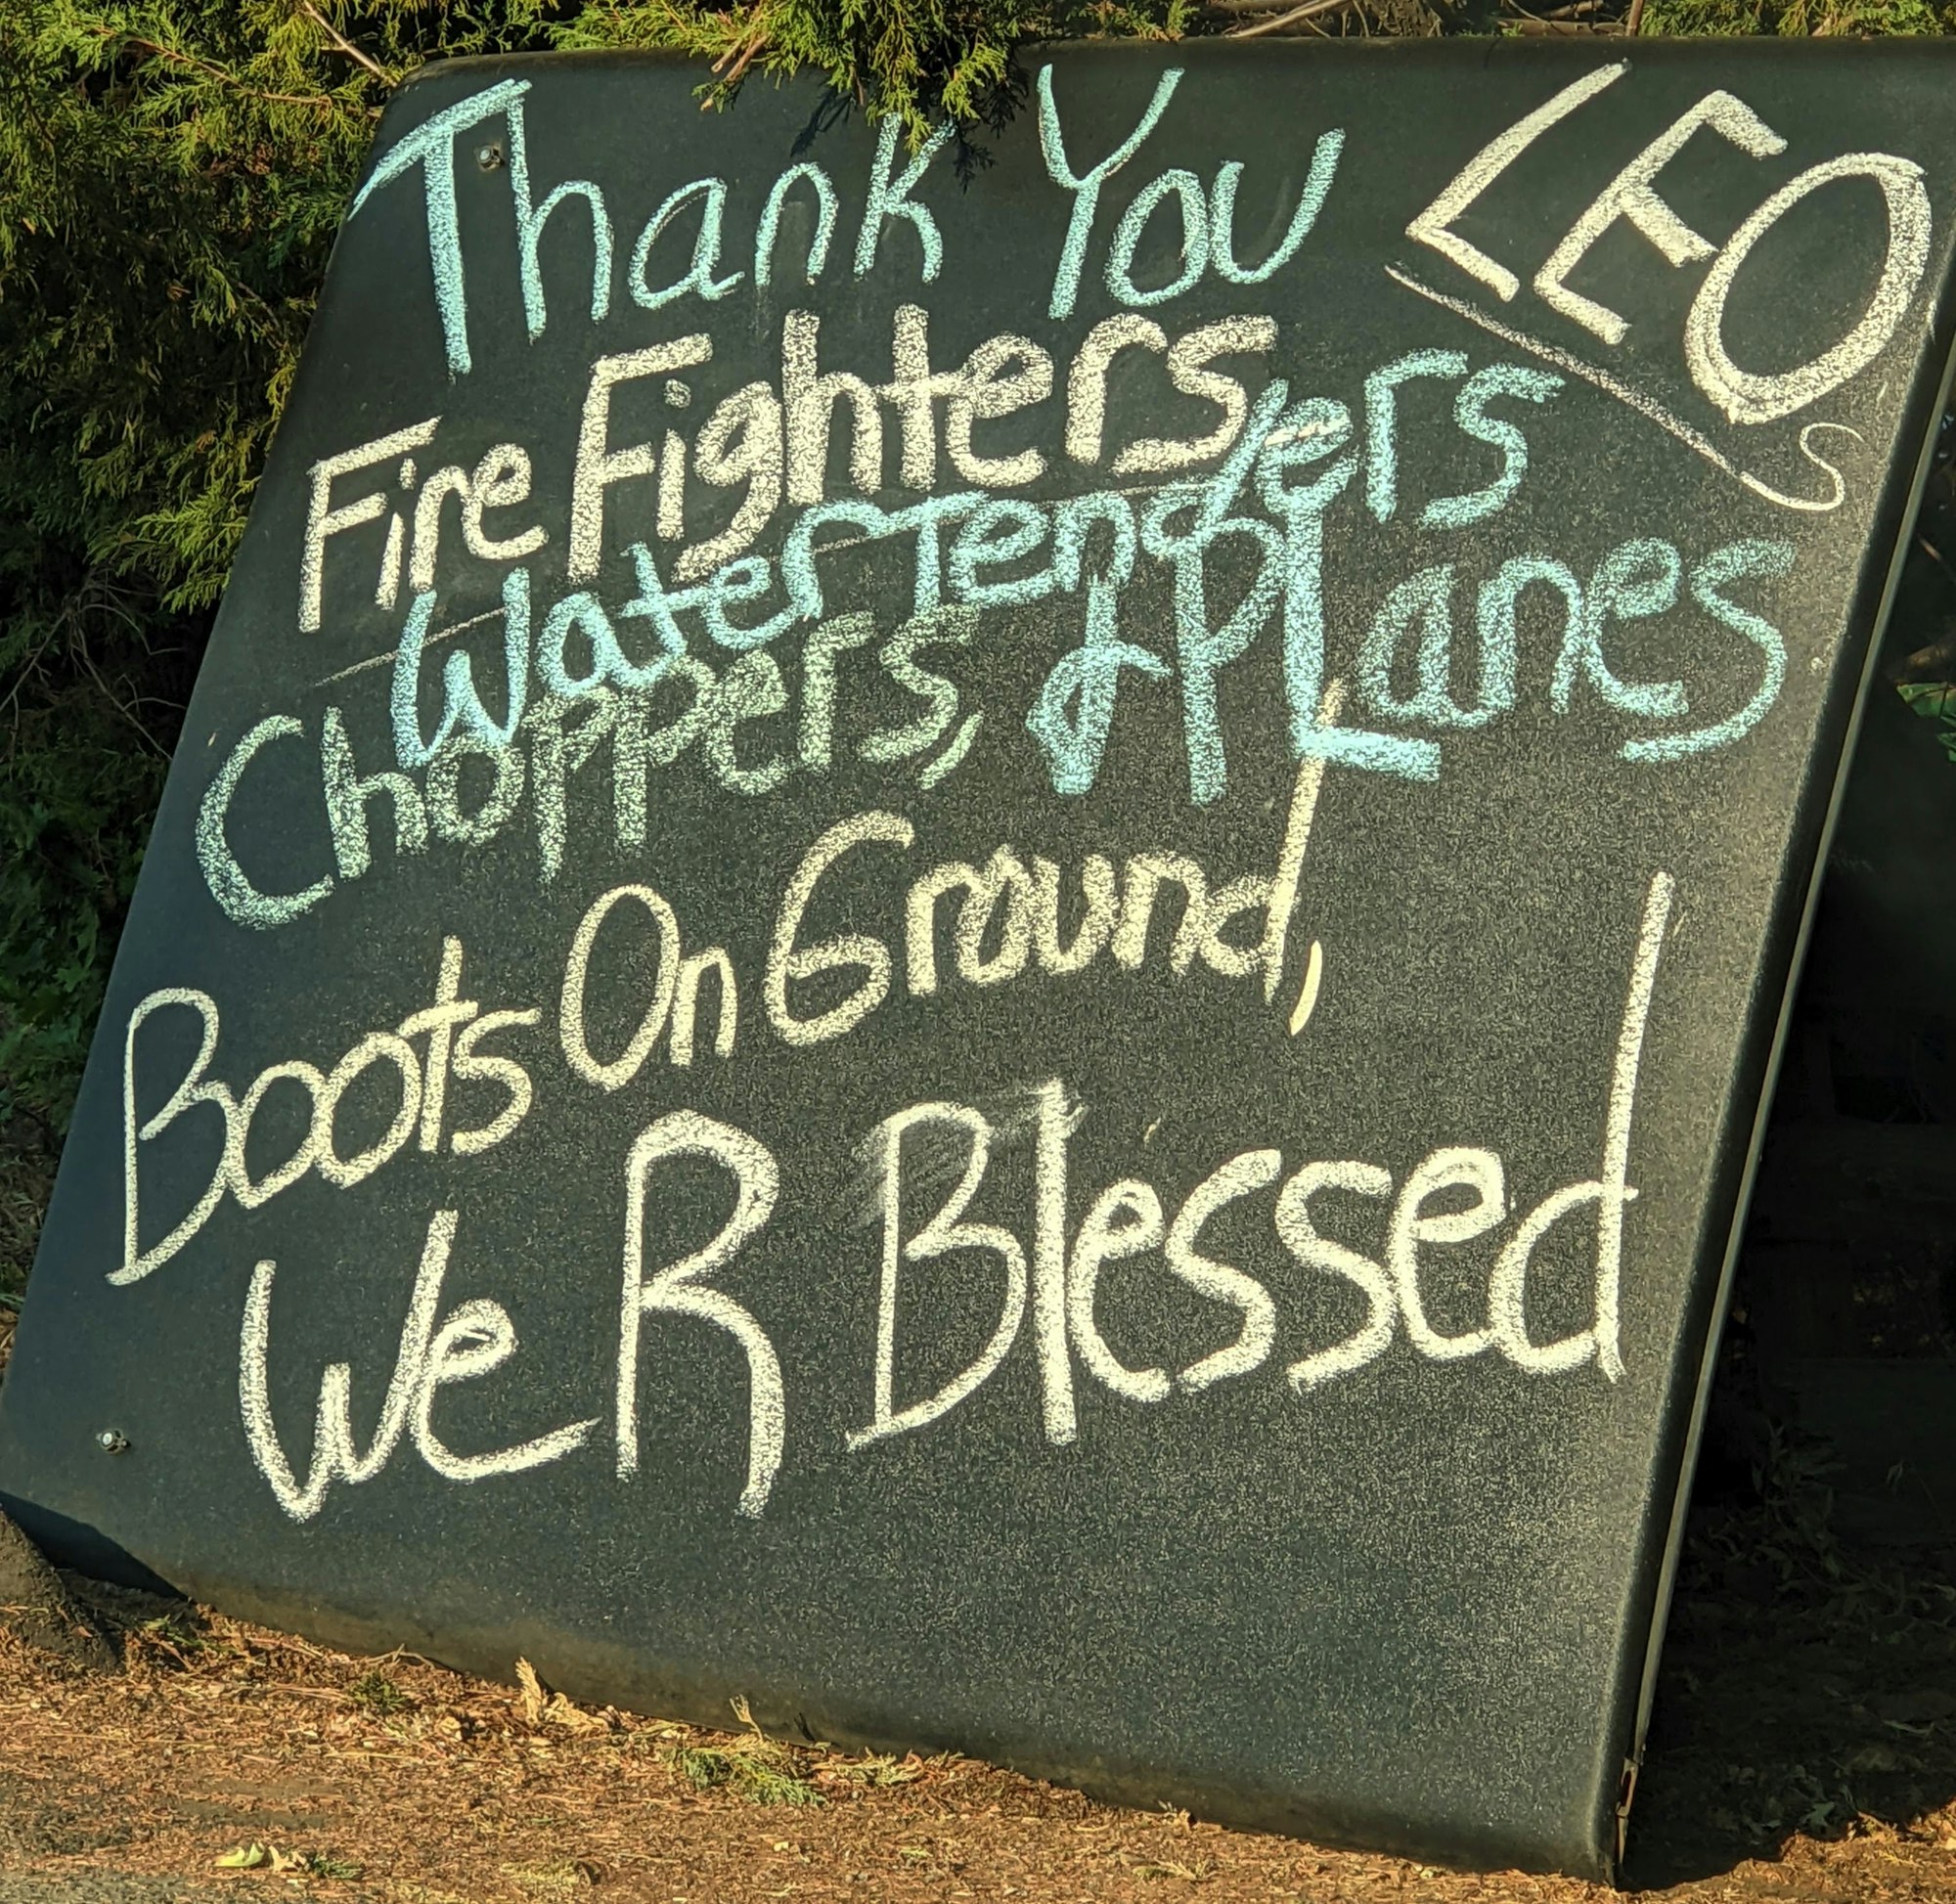 Thank You LEOs
Fire Fighters
Water Tenders
Choppers, & PLanes
Boots On Ground,
We R Blessed